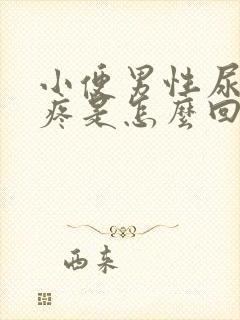 小便男性尿
疼是怎麼回
西来